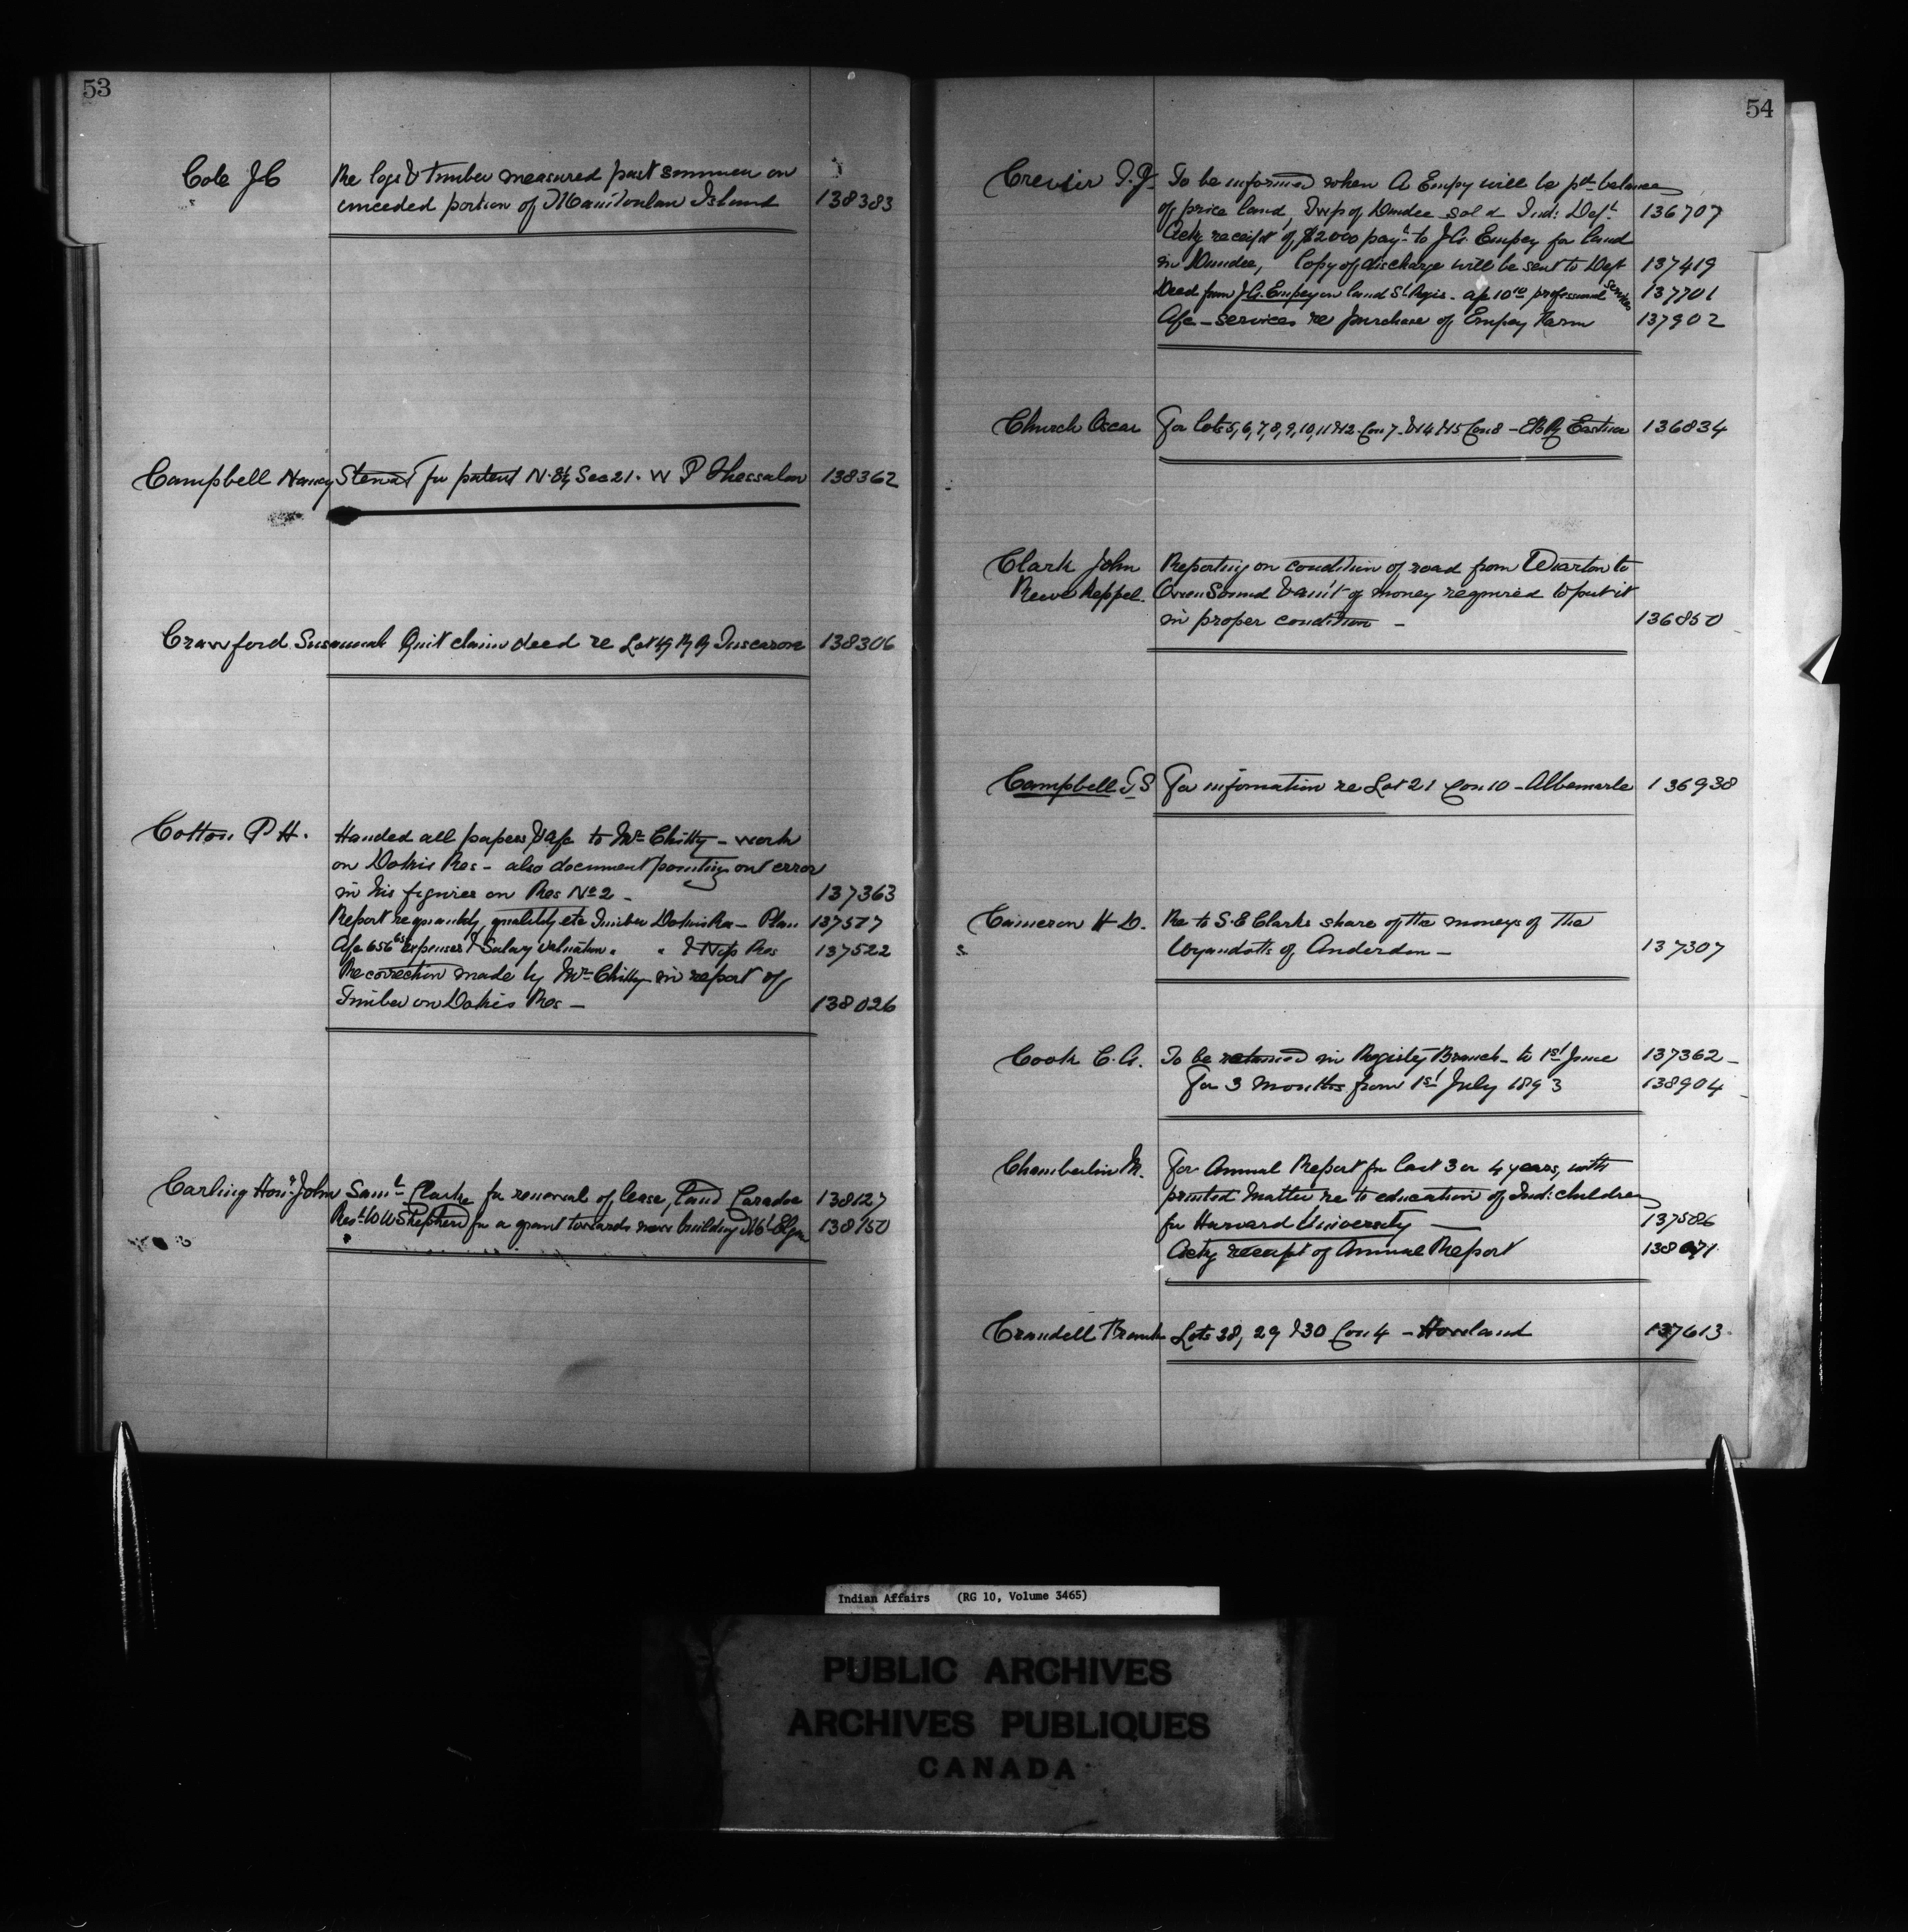 53
Cole J C Re logs & timber measured past summer on
unceded portion of Manitoulin Island 138383
Campbell Nancy Stewart for patent N. Sec 21. W P Thessalon 138362
Crawford Susannah Quit claim deed re Lot R R Tuscarora 138306
Cotton P H. Handed all papers & a/c to Mr Chitty - work
on Dokis Res - also document pointing out error
in his figures on Res No 2 - 137363
Report re quantity, quality etc Timber Dokis Res - Plan 137577
A/c 656 65 expenses & Salary valuation " " & Nip Res 137522
Re correction made by Mr Chitty in report of
Timber on Dokis Res - 138026
Carling Honr. John Saml. Clarke for renewal of lease, land Caradoc 138127
Revd W W Shepherd for a grant towards new building Mt Elgin 138150
54
Crevier To be informed when A Empey will be pd balance
of price land, Twp of Dundee sold Ind: Dept. 136707
Ackg receipt of $2000 payt. to J G. Empey for land
in Dundee, Copy of discharge will be sent to Dept 137419
Deed from J G. Empey on land St Regis - a/c 10 10 professional services 137701
A/c - services re purchase of Empey Farm 137902
Church Oscar For lots 5, 6, 7, 8, 9, 10, 11 & 12 - Con 7 - & 14 & 15 Con 8 - Eastnor 136834
Clark John Reporting on condition of road from Wiarton to
Reeve Keppel. Owen Sound & am't of money required to put it
in proper condition - 136850
Campbell T S For information re Lot 21 Con 10 - Albemarle 136938
Cameron H D. Re to S. E Clarks share of the moneys of the
Wyandotts of Anderdon - 137307
Cook C. A. To be retained in Registry Branch - to 1st June 137362 -
For 3 months from 1st July 1893 138904
Chamberlin M. For Annual Report for last 3 or 4 years, with
printed matter re to education of Ind: children
for Harvard University 137586
Ackg receipt of Annual Report
Crandell Frank Lots 28, 29 & 30 Con 4 - Howland 137613
Indian Affairs (RG 10, Volume 3465)
PUBLIC ARCHIVES
ARCHIVES PUBLIQUES
CANADA